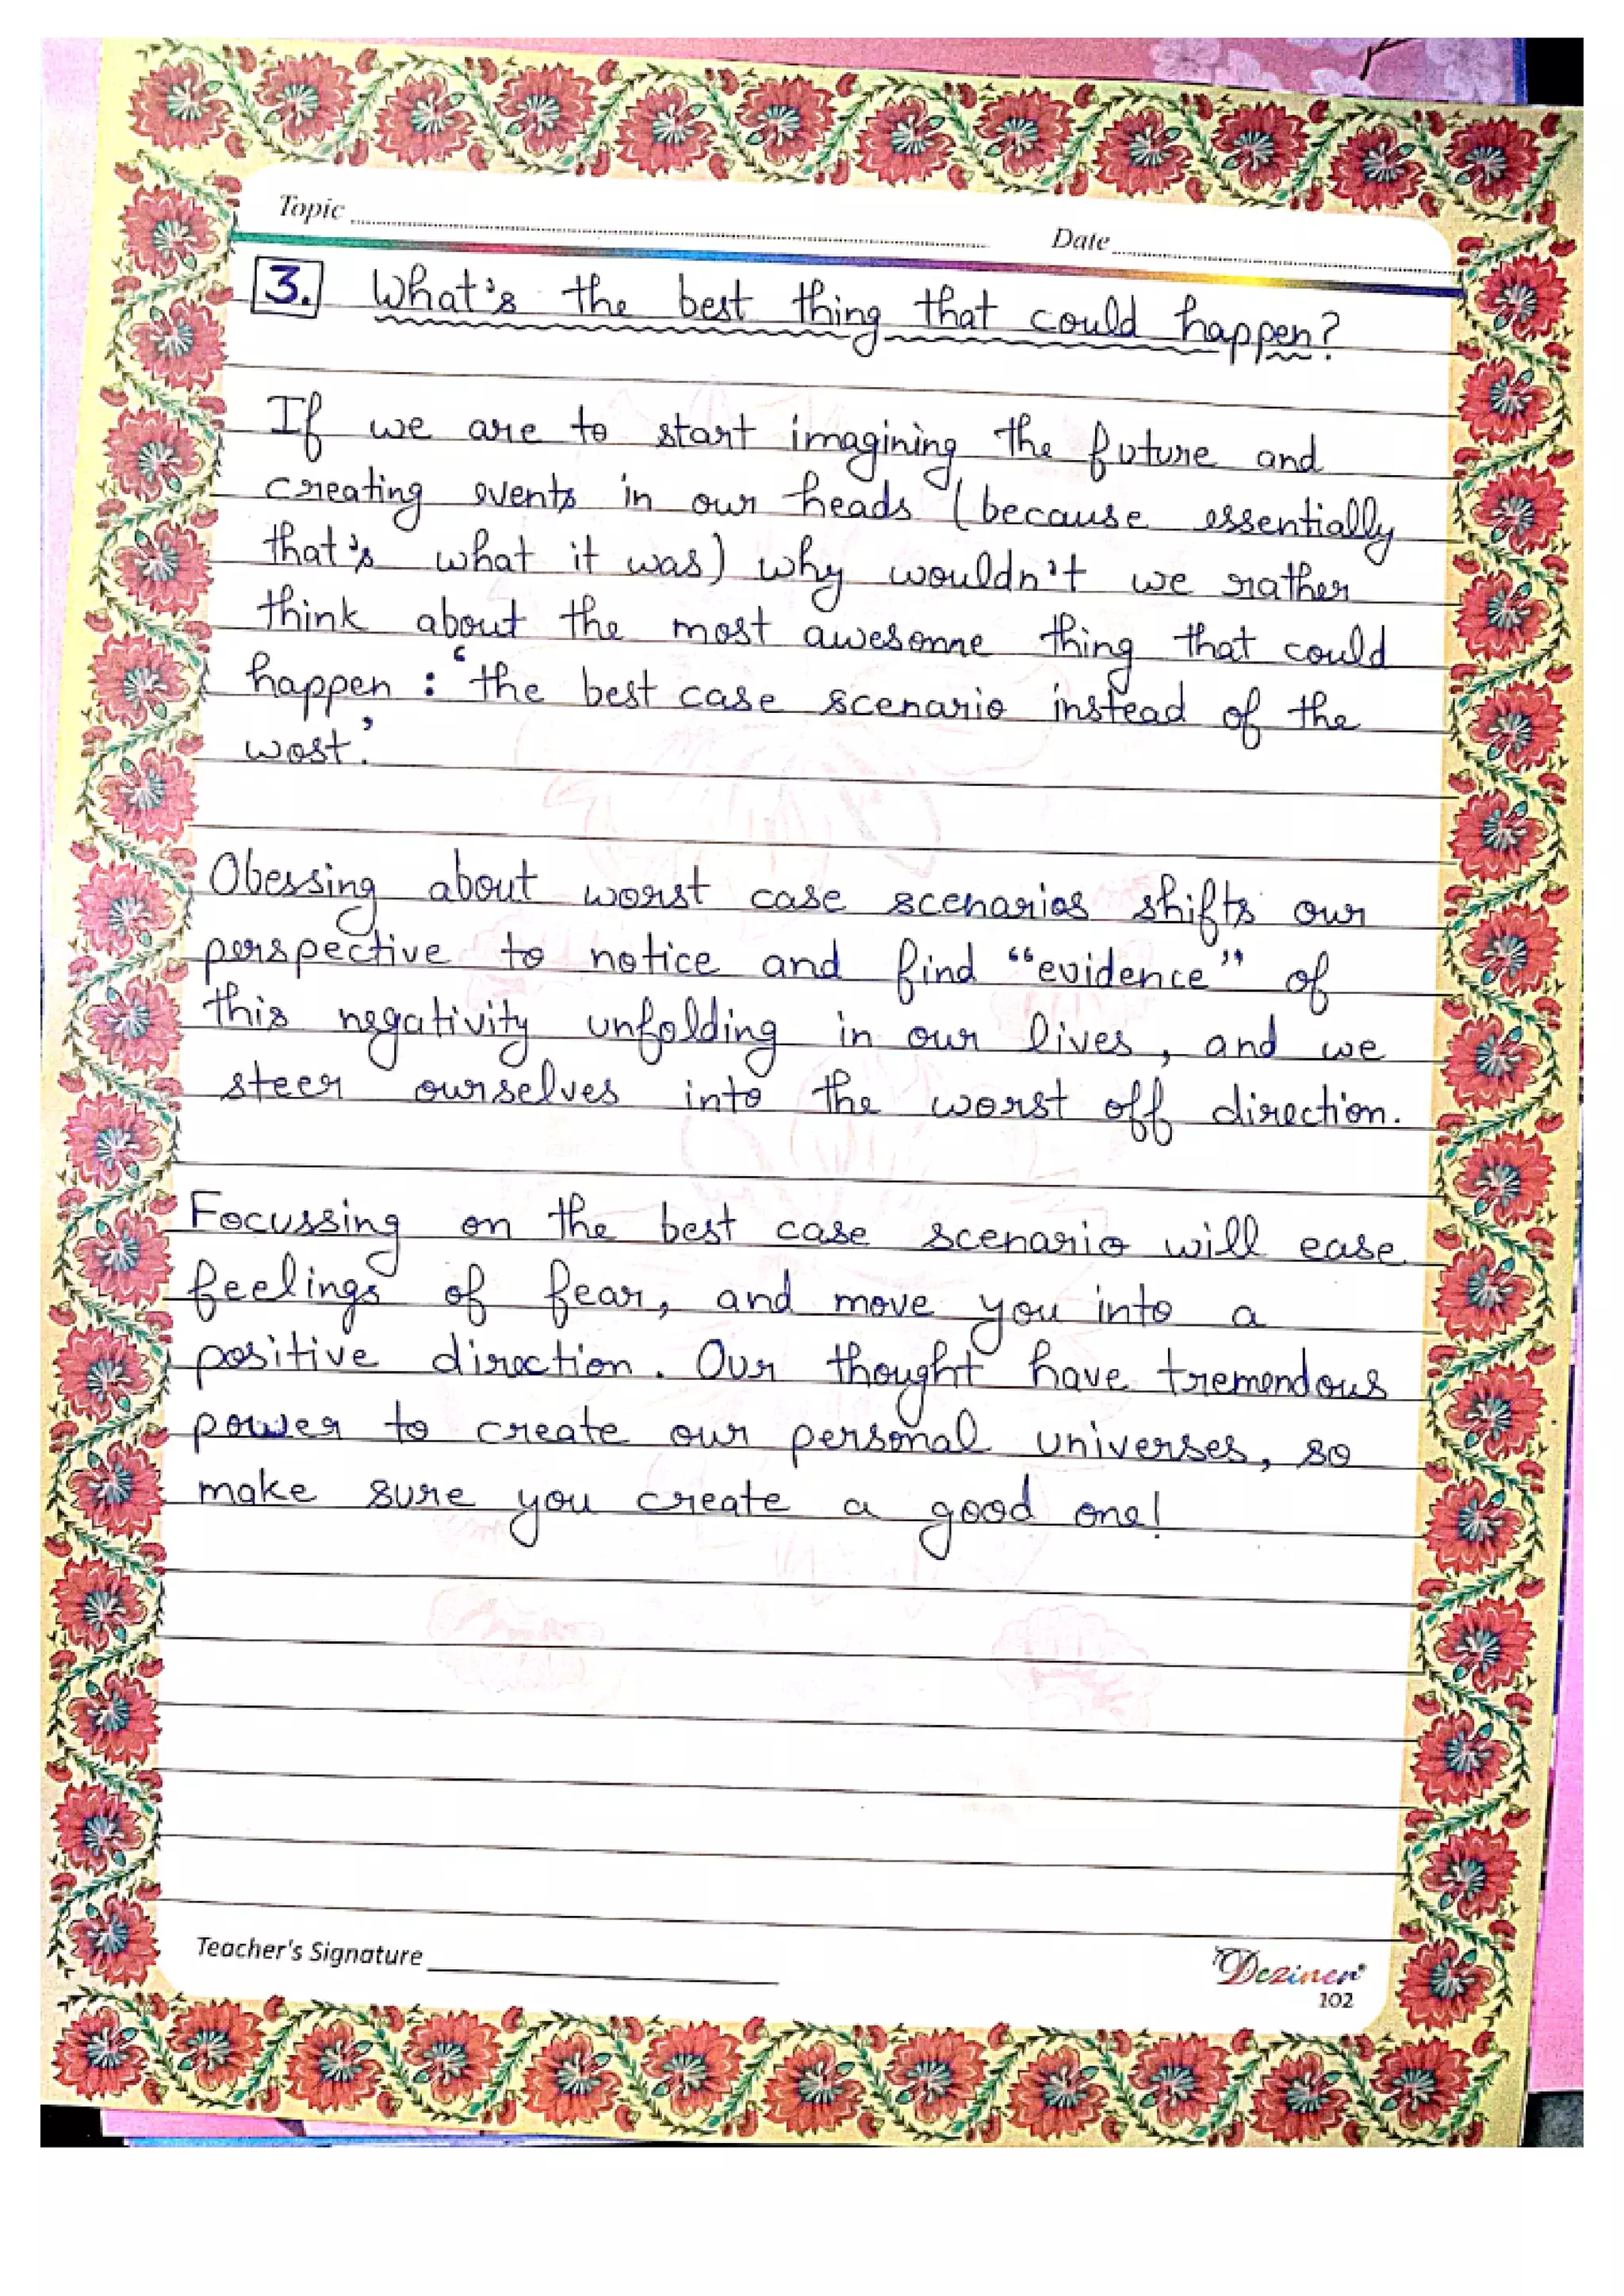 Topic
Date
3. What's the best thing that could happen?
If we are to start imagining the future and
creating events in our heads (because essentially
that's what it was) why wouldn't we rather
think about the most awesome thing that could
happen : 'the best case scenario instead of the
wost'.
Obessing about worst case scenarios shifts our
perspective to notice and find "evidence" of
this negativity unfolding in our lives, and we
steer ourselves into the worst off direction.
Focussing on the best case scenario will ease
feelings of fear, and move you into a
positive direction. Our thought have tremendous
power to create our personal universes, so
make sure you create a good one!
Teacher's Signature
Deziner
102